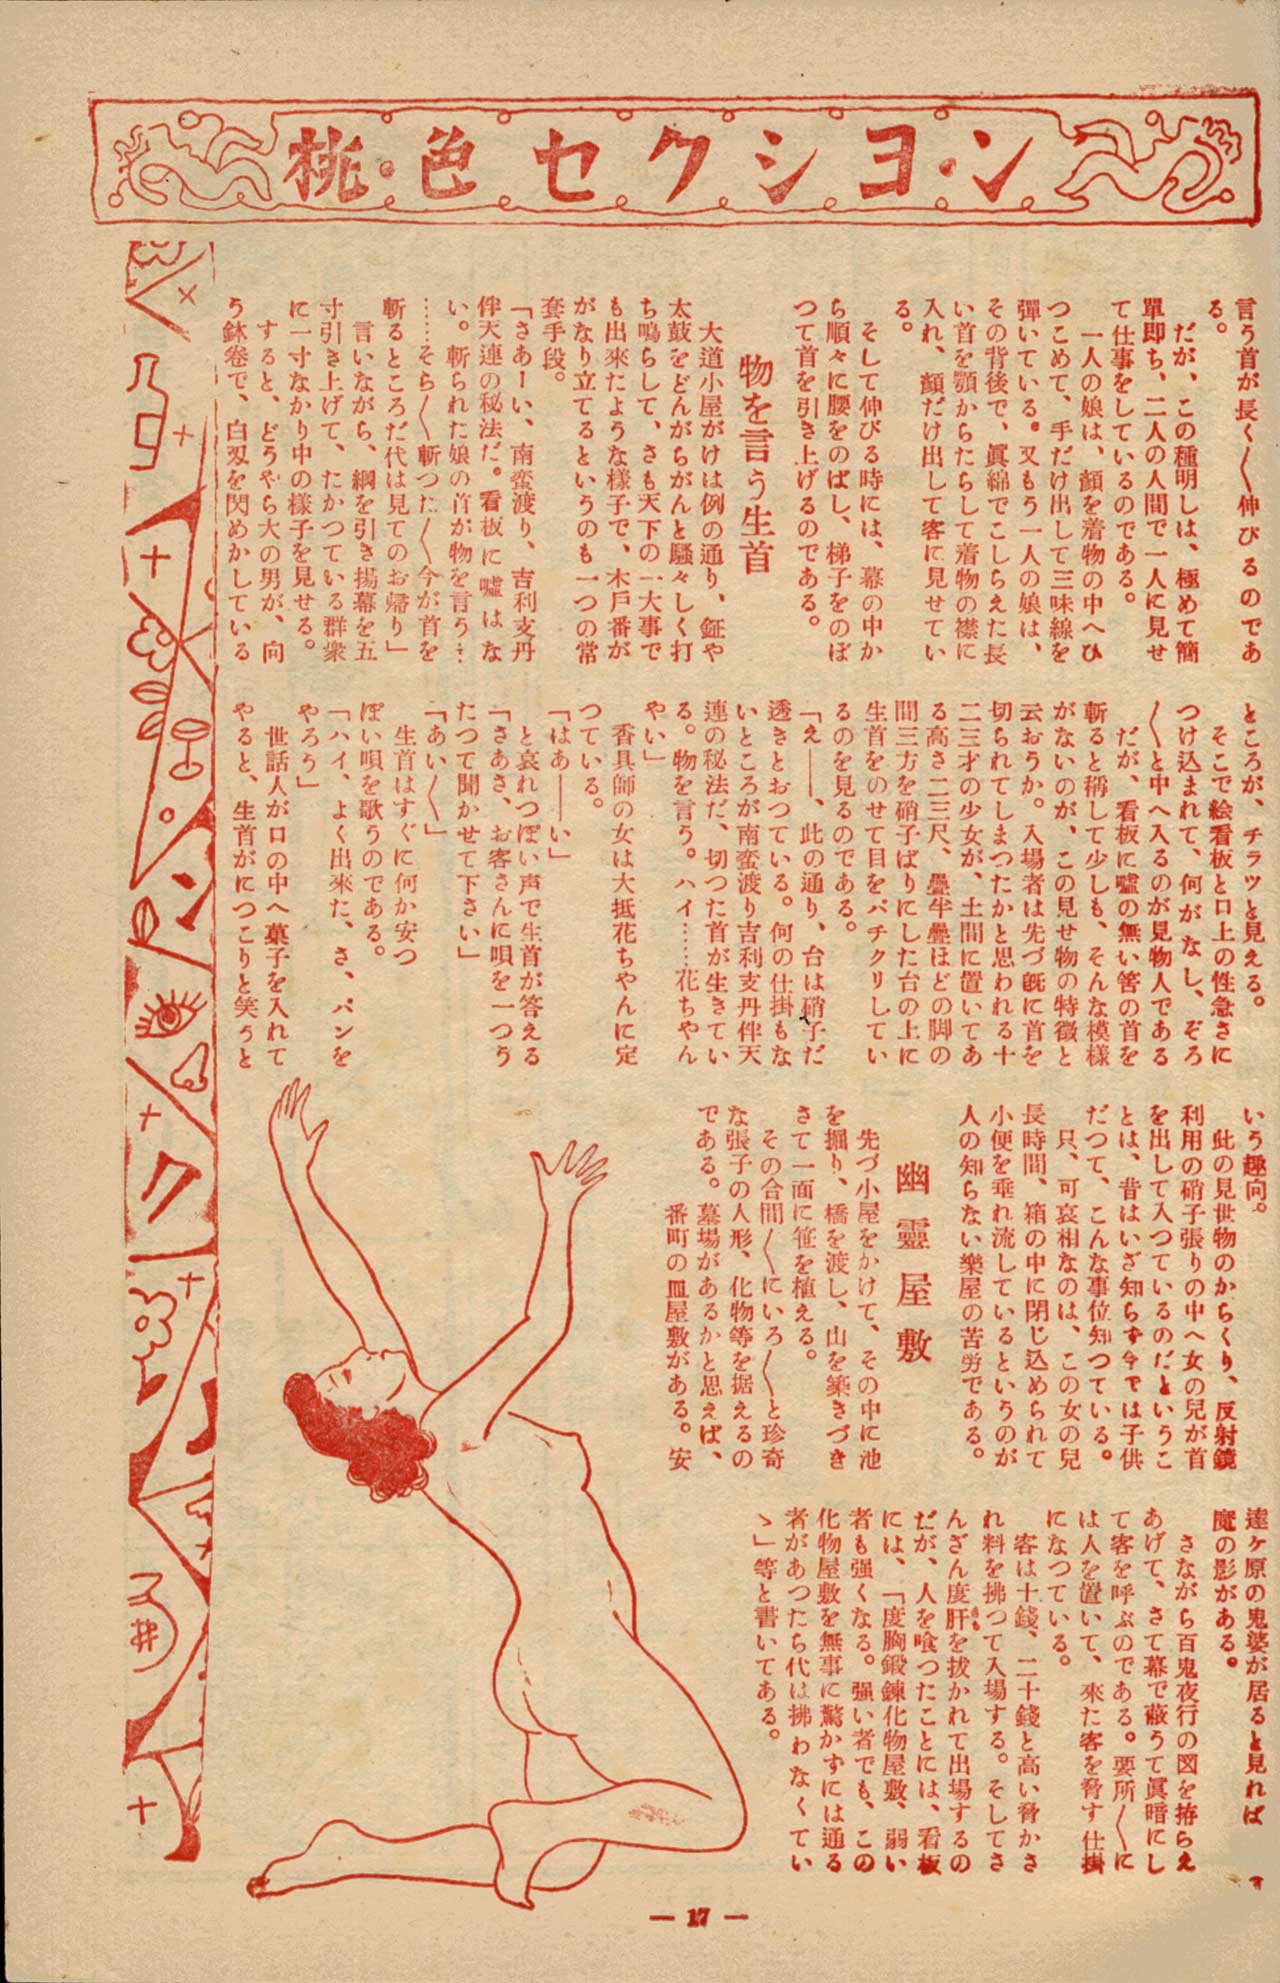 桃・色セクシヨ・ン
言う首が長く〱伸びるのであ
る。
だが、この種明しは、極めて簡
單即ち、二人の人間で一人に見せ
て仕事をしているのである。
一人の娘は、顔を着物の中へひ
つこめて、手だけ出して三味線を
彈いている。又もう一人の娘は、
その背後で、眞綿でこしらえた長
い首を顎からたらして着物の襟に
入れ、顔だけ出して客に見せてい
る。
そして伸びる時には、幕の中か
ら順々に腰をのばし、梯子をのぼ
つて首を引き上げるのである。
物を言う生首
大道小屋がけは例の通り、鉦や
太鼓をどんがらがんと騷々しく打
ち鳴らして、さも天下の一大事で
も出來たような様子で、木戸番が
がなり立てるというのも一つの常
套手段。
「さあーい、南蛮渡り、吉利支丹
伴天連の秘法だ。看板に嘘はな
い。斬られた娘の首が物を言う…
……そら〱斬つた〱今が首を
斬るところだ代は見てのお帰り」
言いながら、綱を引き揚幕を五
寸引き上げて、たかつている群衆
に一寸なかり中の様子を見せる。
すると、どうやら大の男が、向
う鉢卷で、白刄を閃めかしている
ところが、チラツと見える。
そこで絵看板と口上の性急さに
つけ込まれて、何がなし、ぞろ
〱と中へ入るのが見物人である
だが、看板に嘘の無い筈の首を
斬ると稱して少しも、そんな模様
がないのが、この見せ物の特徴と
云おうか。入場者は先づ既に首を
切られてしまつたかと思われる十
二三才の少女が、土間に置いてあ
る高さ二三尺、疊半疊ほどの脚の
間三方を硝子ばりにした台の上に
生首をのせて目をパチクリしてい
るのを見るのである。
「え――、此の通り、台は硝子だ
透きとおつている。何の仕掛もな
いところが南蛮渡り吉利支丹伴天
連の秘法だ、切つた首が生きてい
る。物を言う。ハイ……花ちやん
やい」
香具師の女は大抵花ちやんに定
つている。
「はあ――い」
と哀れつぽい声で生首が答える
「さあさ、お客さんに唄を一つう
たつて聞かせて下さい」
「あい〱」
生首はすぐに何か安つ
ぽい唄を歌うのである。
「ハイ、よく出來た、さ、パンを
やろう」
世話人が口の中へ菓子を入れて
やると、生首がにつこりと笑うと
いう趣向。
此の見世物のからくり、反射鏡
利用の硝子張りの中へ女の兒が首
を出して入つているのだというこ
とは、昔はいざ知らず今では子供
だつて、こんな事位知つている。
只、可哀相なのは、この女の兒
長時間、箱の中に閉じ込められて
小便を垂れ流しているというのが
人の知らない樂屋の苦労である。
幽靈屋敷
先づ小屋をかけて、その中に池
を掘り、橋を渡し、山を築きづき
さて一面に笹を植える。
その合間〱にいろ〱と珍奇
な張子の人形、化物等を据えるの
である。墓場があるかと思えば、
番町の皿屋敷がある。安
達ケ原の鬼婆が居ると見れば
魔の影がある。
さながら百鬼夜行の図を拵らえ
あげて、さて幕で蔽うて眞暗にし
て客を呼ぶのである。要所〱に
は人を置いて、來た客を脅す仕掛
になつている。
客は十錢、二十錢と高い脅かさ
れ料を拂つて入場する。そしてさ
んざん度肝を拔かれて出場するの
だが、人を喰つたことには、看板
には、「度胸鍛錬化物屋敷、弱い
者も强くなる。强い者でも、この
化物屋敷を無事に驚かずには通る
者があつたら代は拂わなくてい
ゝ」等と書いてある。
― 17 ―